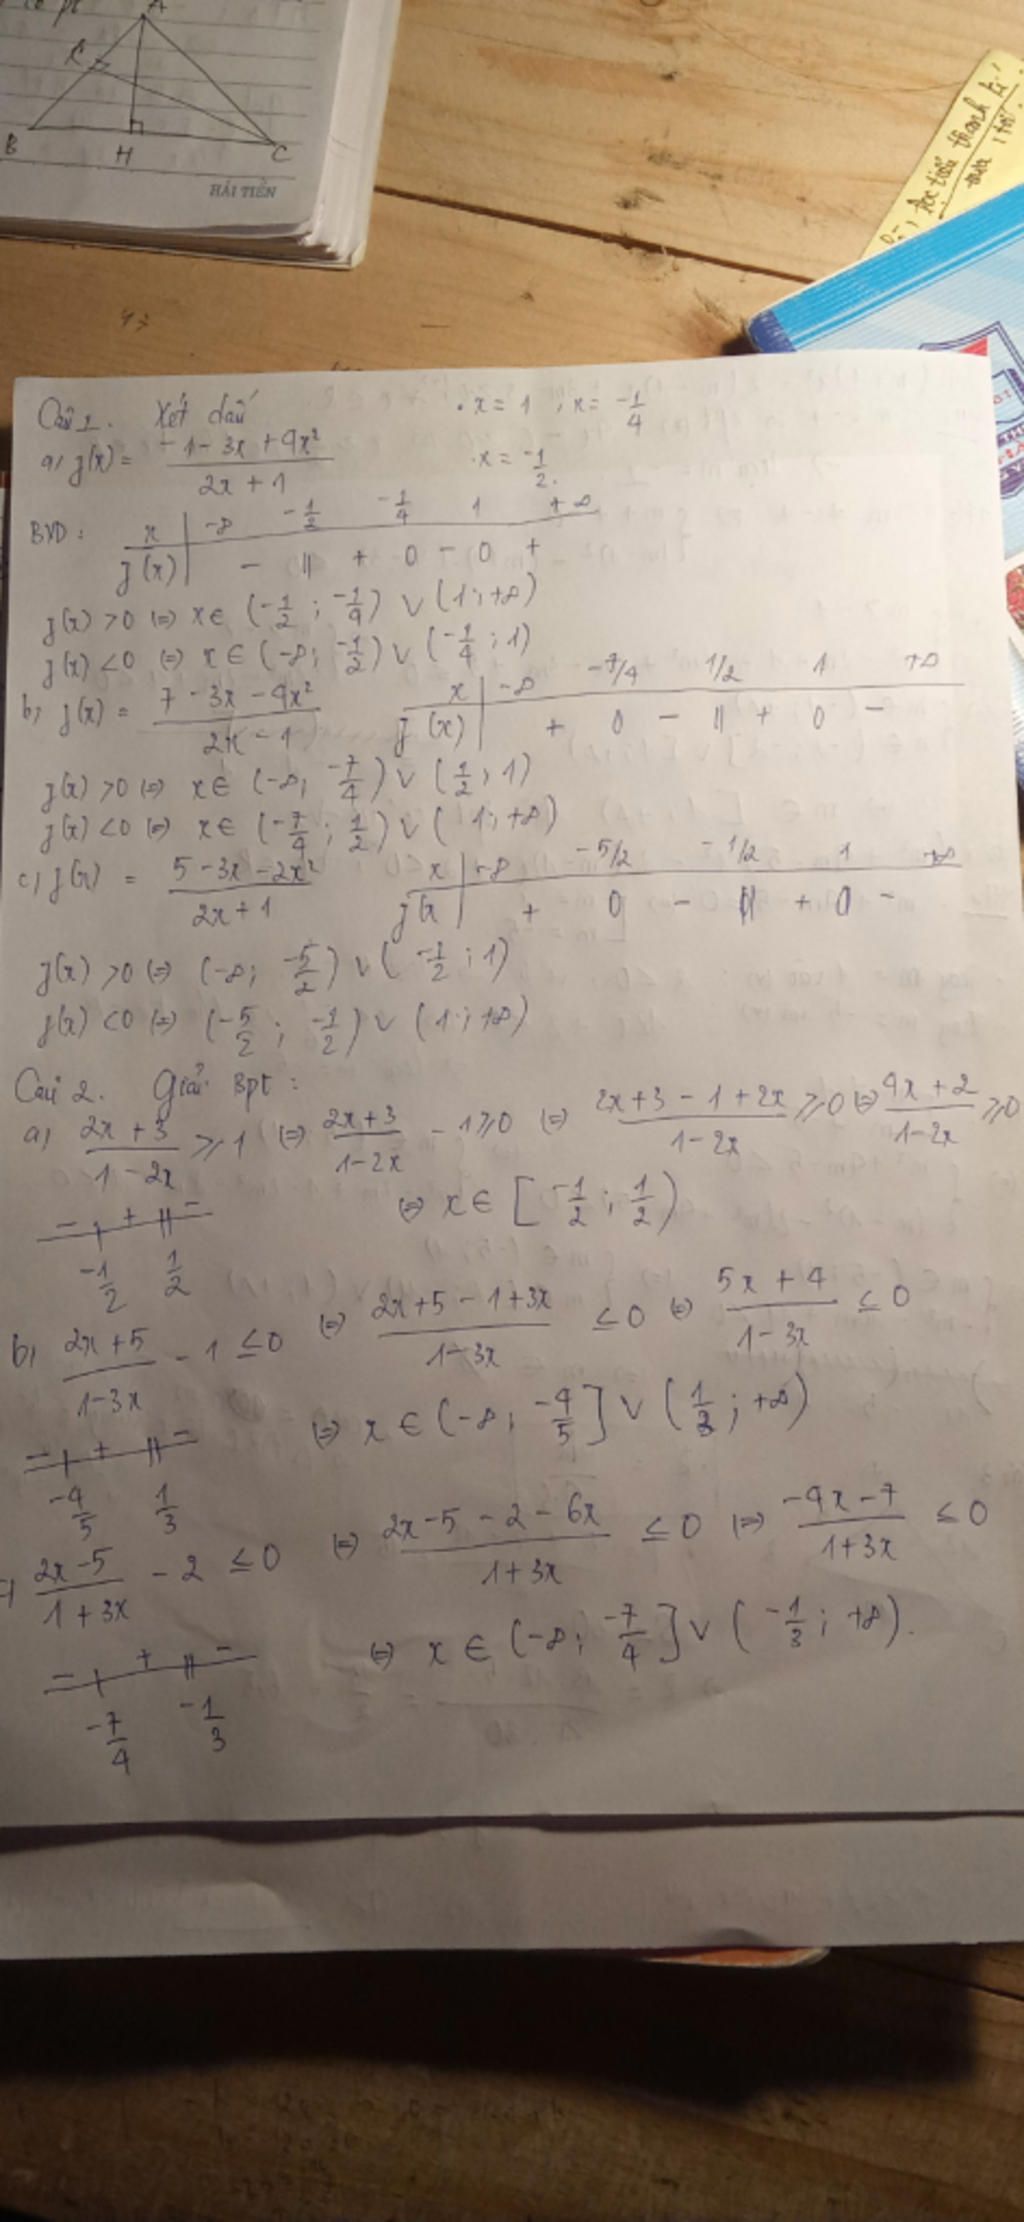 A
K
B
H
C
HẢI TIẾN
Câu 1. Xét dấu
• x = 1 , x = -1/4
a, f(x) = (-1 - 3x + 4x²)/(2x + 1)
• x = -1/2.
BXD: x | -∞ -1/2 -1/4 1 +∞
f(x) | - || + 0 - 0 +
f(x) > 0 (=) x ∈ (-1/2 ; -1/4) ∨ (1; +∞)
f(x) < 0 (=) x ∈ (-∞; -1/2) ∨ (-1/4 ; 1)
b, f(x) = (7 - 3x - 4x²)/(2x - 1)
x | -∞ -7/4 1/2 1 +∞
f(x) | + 0 - || + 0 -
f(x) > 0 (=) x ∈ (-∞; -7/4) ∨ (1/2 ; 1)
f(x) < 0 (=) x ∈ (-7/4 ; 1/2) ∨ (1; +∞)
c, f(x) = (5 - 3x - 2x²)/(2x + 1)
x | -∞ -5/2 -1/2 1 +∞
f(x | + 0 - || + 0 -
f(x) > 0 (=) (-∞; -5/2) ∨ (-1/2 ; 1)
f(x) < 0 (=) (-5/2 ; -1/2) ∨ (1; +∞)
Câu 2. Giải Bpt :
a, (2x + 3)/(1 - 2x) ≥ 1 (=) (2x + 3)/(1 - 2x) - 1 ≥ 0 (=) (2x + 3 - 1 + 2x)/(1 - 2x) ≥ 0 (=) (4x + 2)/(1 - 2x) ≥ 0
- + || -
-1/2 1/2
(=) x ∈ [-1/2 ; 1/2)
b, (2x + 5)/(1 - 3x) - 1 ≤ 0 (=) (2x + 5 - 1 + 3x)/(1 - 3x) ≤ 0 (=) (5x + 4)/(1 - 3x) ≤ 0
- + || -
-4/5 1/3
(=) x ∈ (-∞; -4/5] ∨ (1/3 ; +∞)
c, (2x - 5)/(1 + 3x) - 2 ≤ 0 (=) (2x - 5 - 2 - 6x)/(1 + 3x) ≤ 0 (=) (-4x - 7)/(1 + 3x) ≤ 0
- + || -
-7/4 -1/3
(=) x ∈ (-∞; -7/4] ∨ (-1/3 ; +∞).